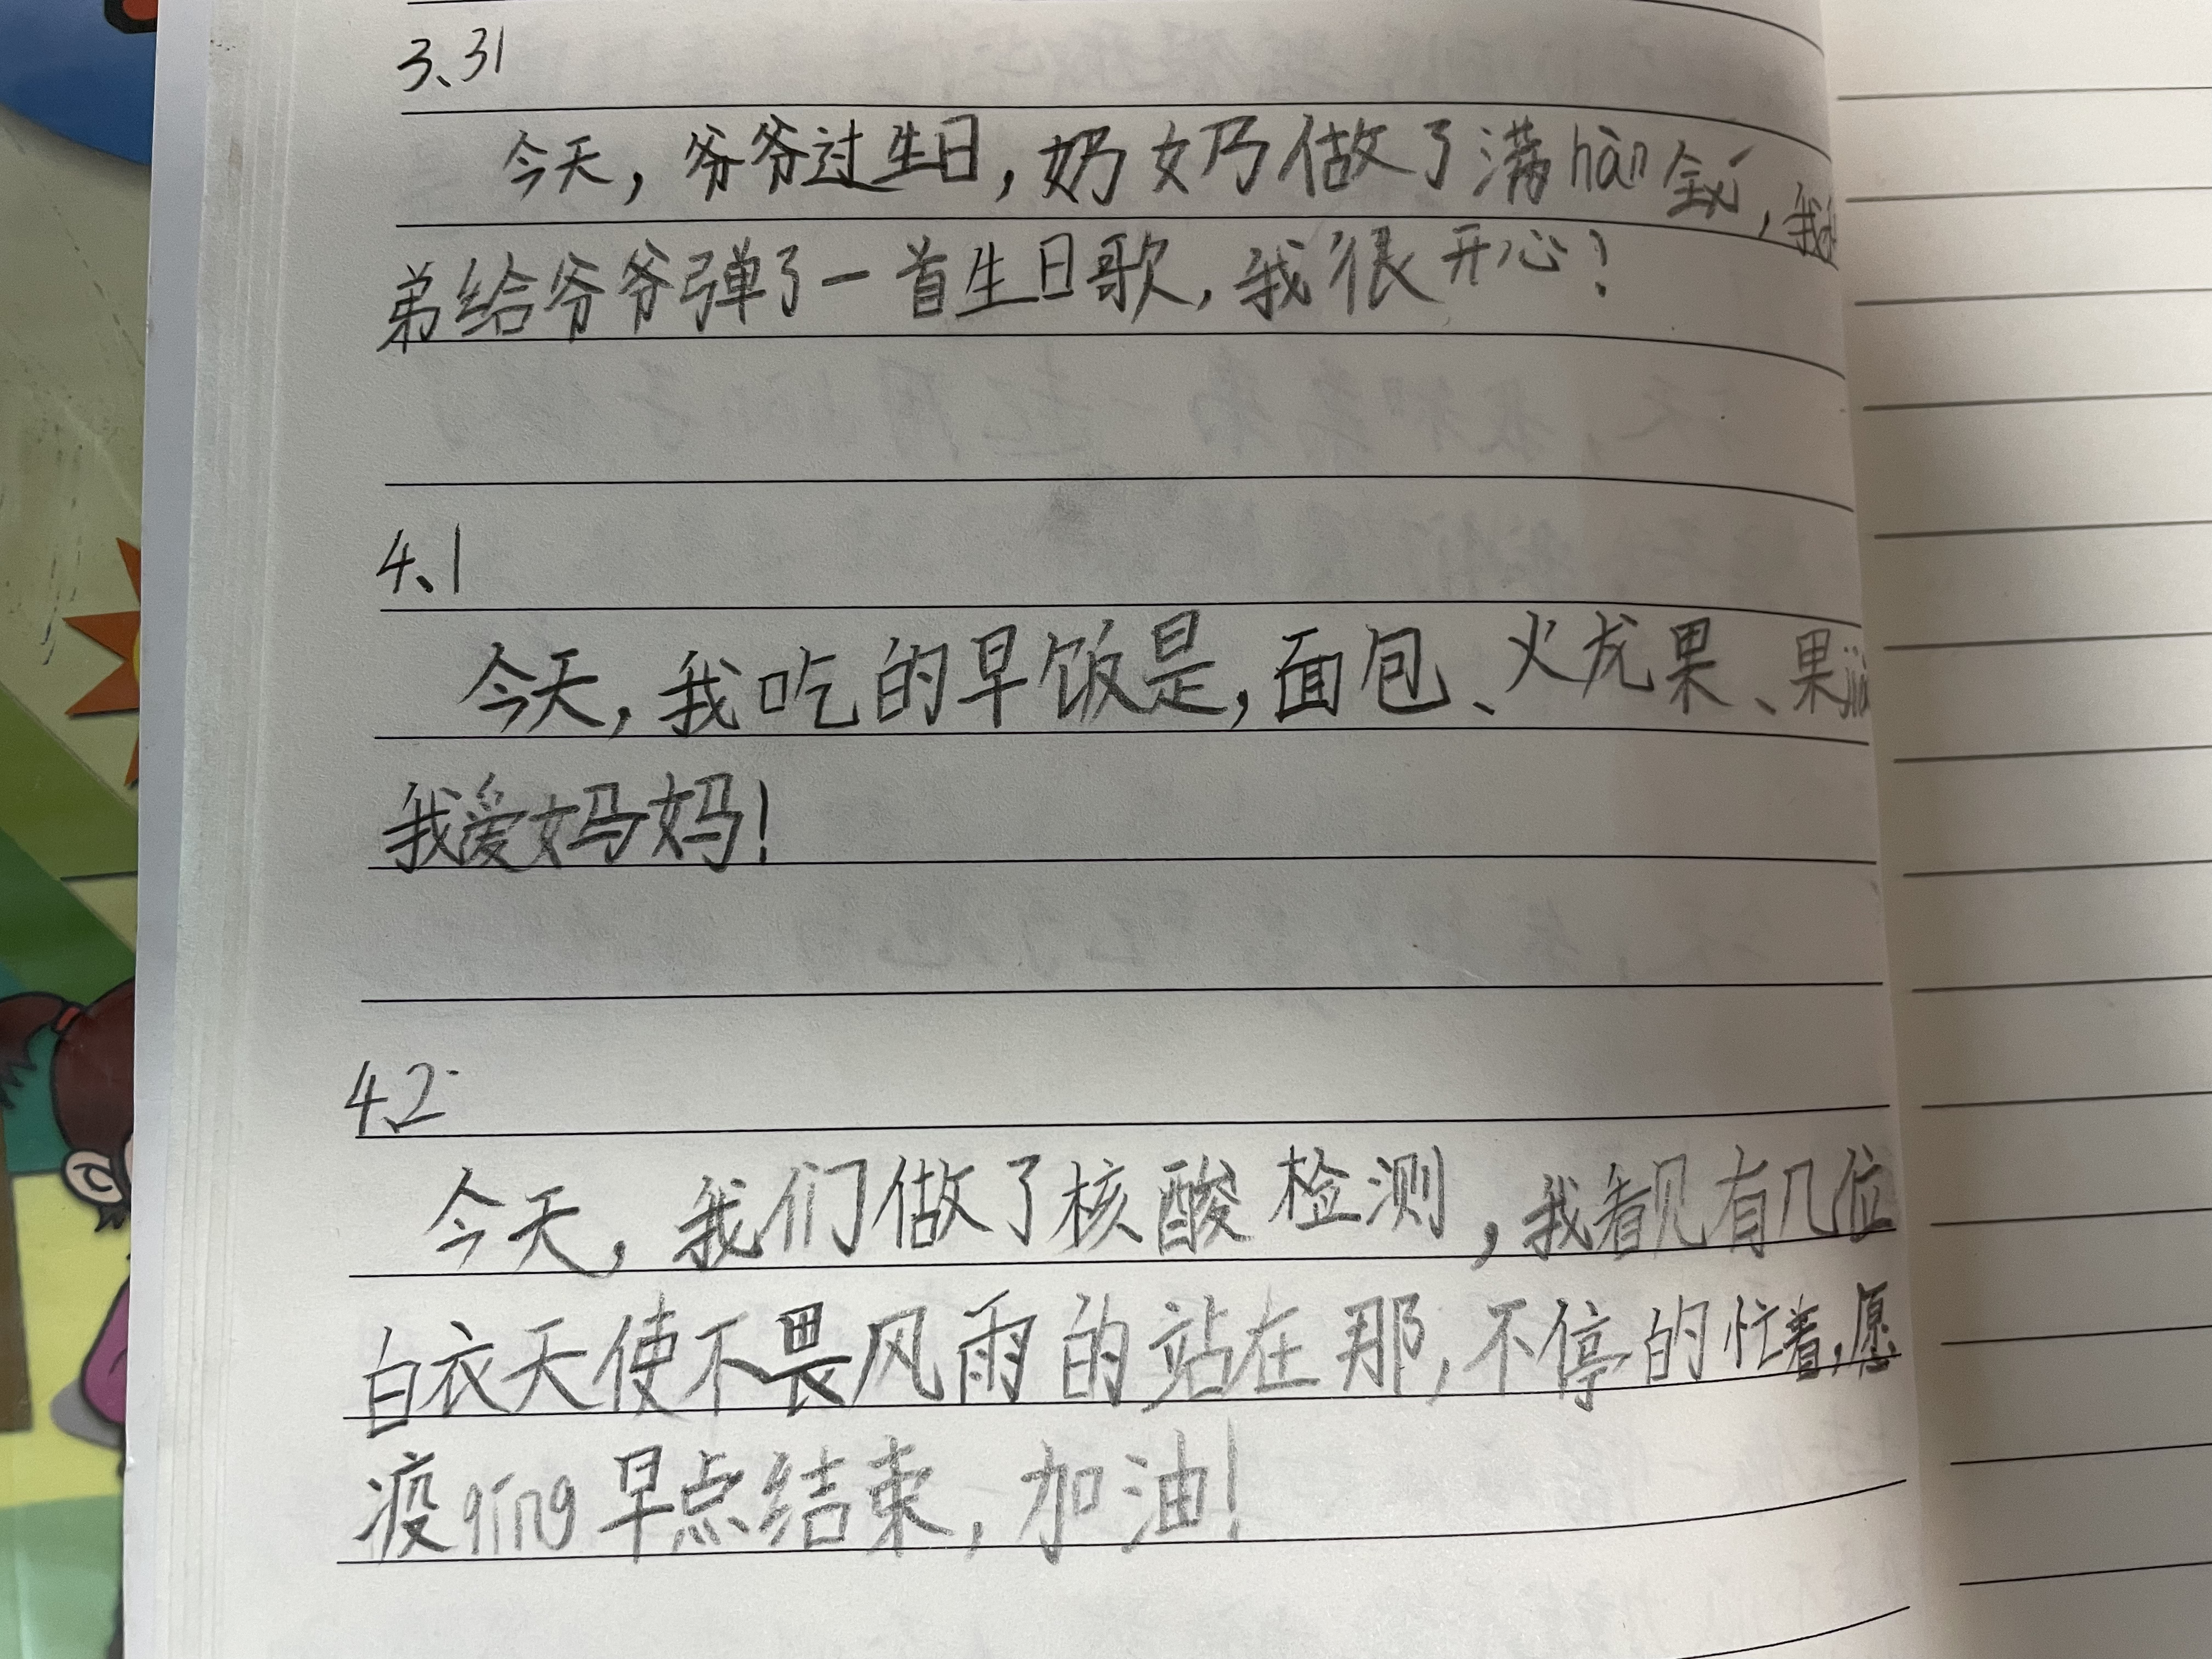 3、31
今天，爷爷过生日，奶奶做了满hàn全xí，我
弟给爷爷弹了一首生日歌，我很开心！
4、1
今天，我吃的早饭是，面包、火龙果、果
我爱妈妈！
4、2
今天，我们做了核酸检测，我看见有几位
白衣天使不畏风雨的站在那，不停的忙着，愿
疫qíng早点结束，加油！